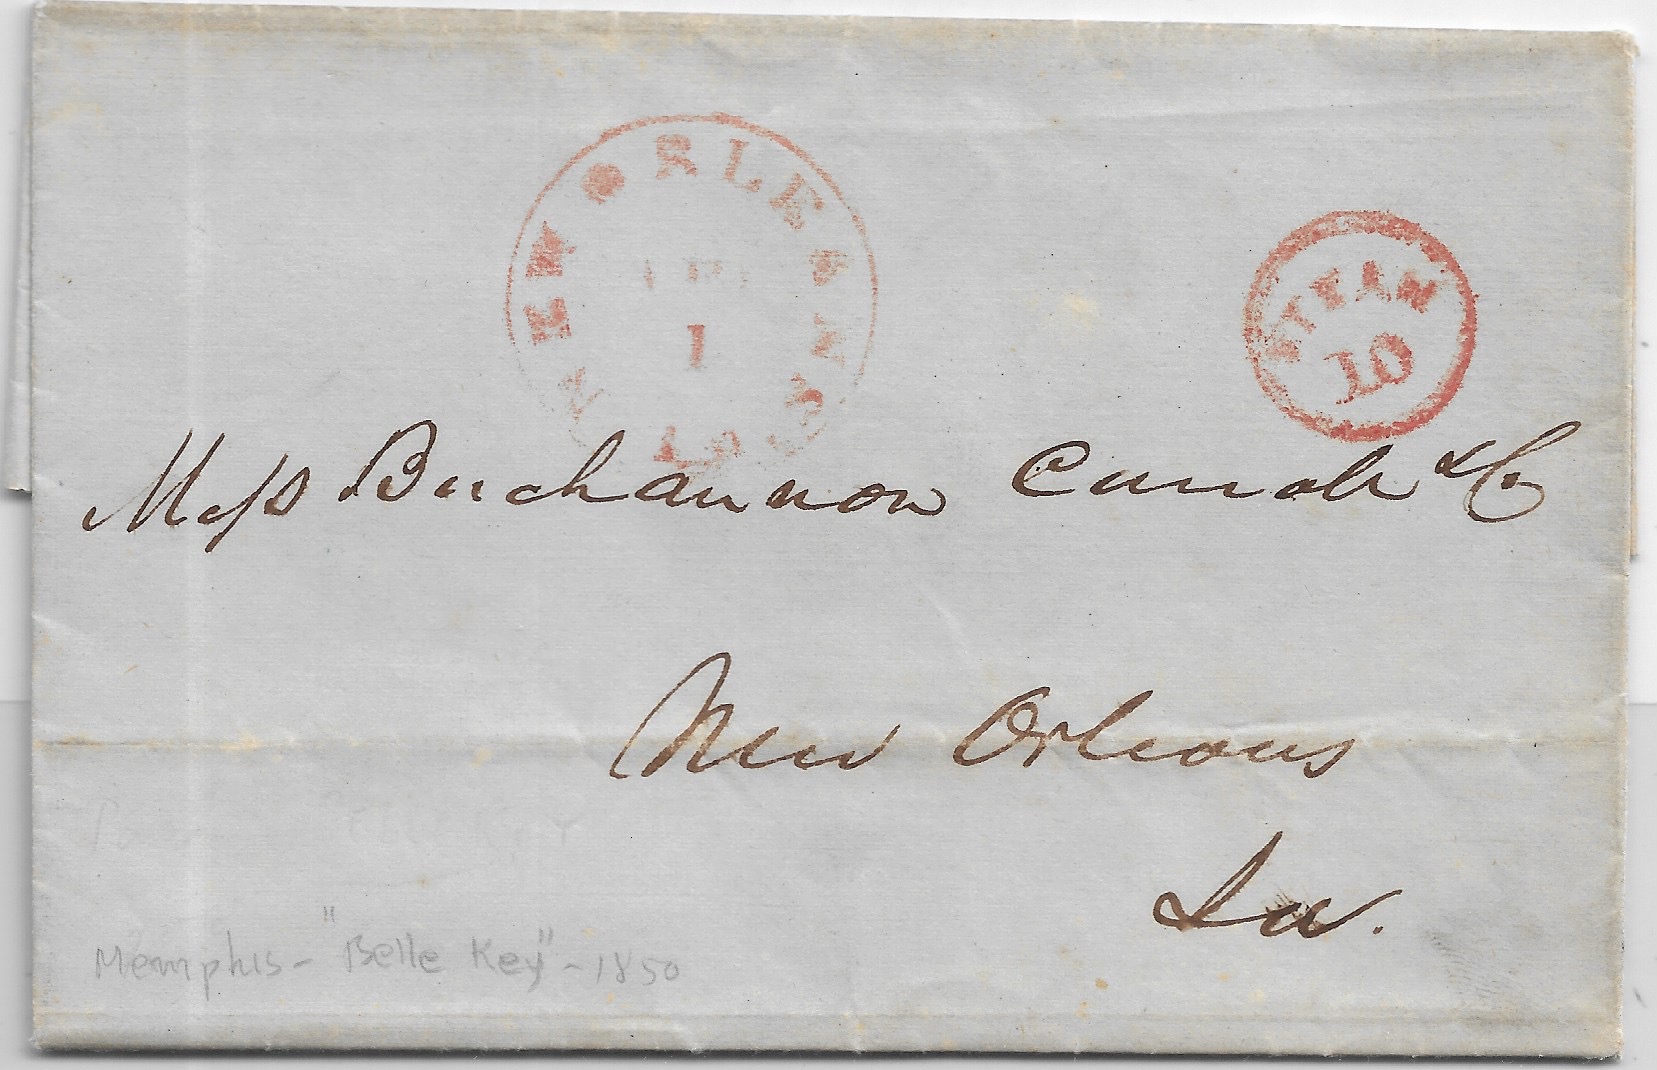 NEW ORLEANS
1
La
STEAM
10
Mess Buchannon Carroll & Co
New Orleans
La.
Memphis - "Belle Key" - 1850